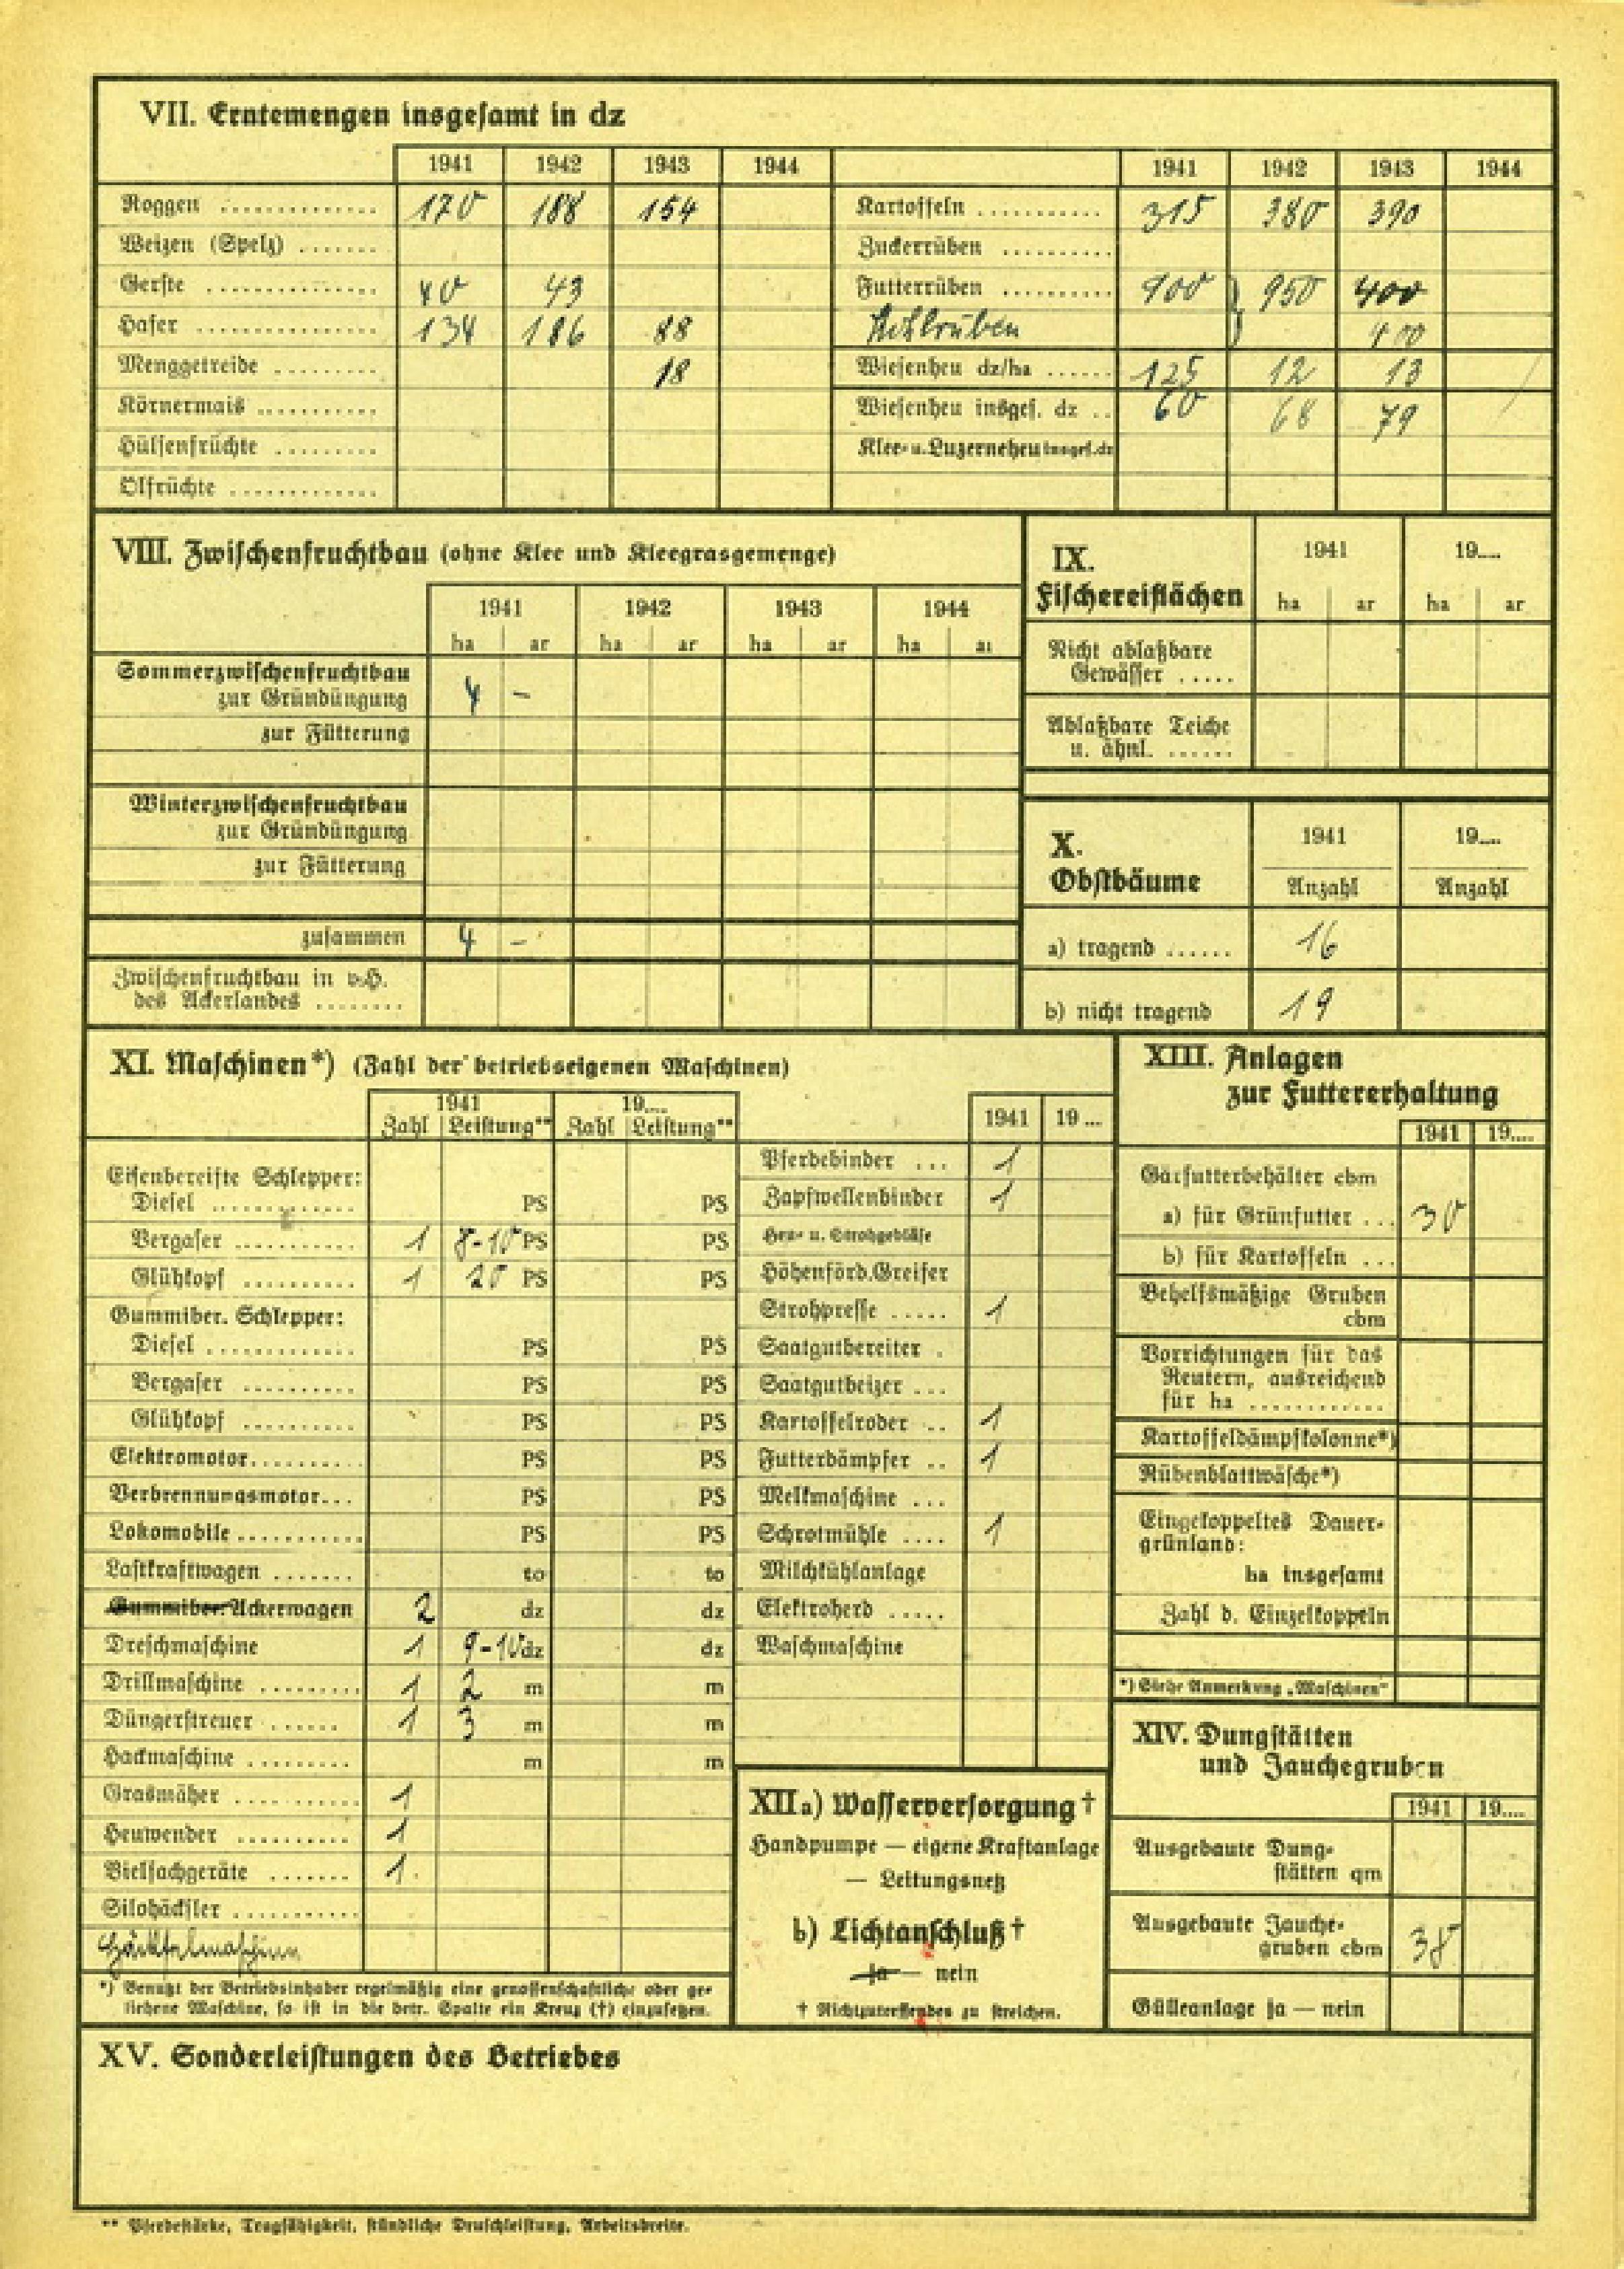 VII. Erntemengen insgesamt in dz
1941 1942 1943 1944 1941 1942 1943 1944
Roggen .............. 170 188 154 Kartoffeln ........... 315 380 390
Weizen (Spelz) ....... Zuckerrüben ..........
Gerste .............. 40 43 Futterrüben .......... 900 } 950 400
Hafer ................ 134 186 88 Kohlrüben 400
Menggetreide ......... 18 Wiesenheu dz/ha ...... 125 12 13
Körnermais ........... Wiesenheu insges. dz .. 60 68 79
Hülsenfrüchte ......... Klee- u. Luzerneheu insges. dz
Ölfrüchte .............
VIII. Zwischenfruchtbau (ohne Klee und Kleegrasgemenge)
1941 1942 1943 1944
ha ar ha ar ha ar ha ar
Sommerzwischenfruchtbau
zur Gründüngung 4 –
zur Fütterung
Winterzwischenfruchtbau
zur Gründüngung
zur Fütterung
zusammen 4 –
Zwischenfruchtbau in v.H.
des Ackerlandes ........
IX.
Fischereiflächen
1941 19....
ha ar ha ar
Nicht ablaßbare
Gewässer .....
Ablaßbare Teiche
u. ähnl. ......
X.
Obstbäume
1941 19....
Anzahl Anzahl
a) tragend ...... 16
b) nicht tragend 19
XI. Maschinen*) (Zahl der betriebseigenen Maschinen)
1941 19....
Zahl Leistung** Zahl Leistung**
Eisenbereifte Schlepper:
Diesel ............. PS PS
Vergaser ........... 1 8-10 PS PS
Glühkopf .......... 1 20 PS PS
Gummiber. Schlepper:
Diesel ............. PS PS
Vergaser .......... PS PS
Glühkopf .......... PS PS
Elektromotor.......... PS PS
Verbrennungsmotor... PS PS
Lokomobile........... PS PS
Lastkraftwagen ....... to to
Gummiber. Ackerwagen 2 dz dz
Dreschmaschine 1 9-10 dz dz
Drillmaschine ......... 1 2 m m
Düngerstreuer ...... 1 3 m m
Hackmaschine ......... m m
Grasmäher ........... 1
Heuwender .......... 1
Vielfachgeräte ....... 1
Silohäcksler ...........
Häckselmaschine
*) Benutzt der Betriebsinhaber regelmäßig eine genossenschaftliche oder ge-
liehene Maschine, so ist in die betr. Spalte ein Kreuz (†) einzusetzen.
1941 19 ...
Pferdebinder ... 1
Zapfwellenbinder 1
Heu- u. Strohgebläse
Höhenförd. Greifer
Strohpresse ..... 1
Saatgutbereiter .
Saatgutbeizer ...
Kartoffelroder .. 1
Futterdämpfer .. 1
Melkmaschine ...
Schrotmühle .... 1
Milchkühlanlage
Elektroherd .....
Waschmaschine
XIIa) Wasserversorgung †
Handpumpe — eigene Kraftanlage
— Leitungsnetz
b) Lichtanschluß †
ja — nein
† Nichtzutreffendes zu streichen.
XIII. Anlagen
zur Futtererhaltung
1941 19....
Gärfutterbehälter cbm
a) für Grünfutter ... 30
b) für Kartoffeln ...
Behelfsmäßige Gruben
cbm
Vorrichtungen für das
Reutern, ausreichend
für ha ............
Kartoffeldämpfkolonne*)
Rübenblattwäsche*)
Eingekoppeltes Dauer-
grünland:
ha insgesamt
Zahl d. Einzelkoppeln
*) Siehe Anmerkung „Maschinen"
XIV. Dungstätten
und Jauchegruben
1941 19....
Ausgebaute Dung-
stätten qm
Ausgebaute Jauche-
gruben cbm 38
Gülleanlage ja — nein
XV. Sonderleistungen des Betriebes
** Pferdestärke, Tragfähigkeit, stündliche Druschleistung, Arbeitsbreite.